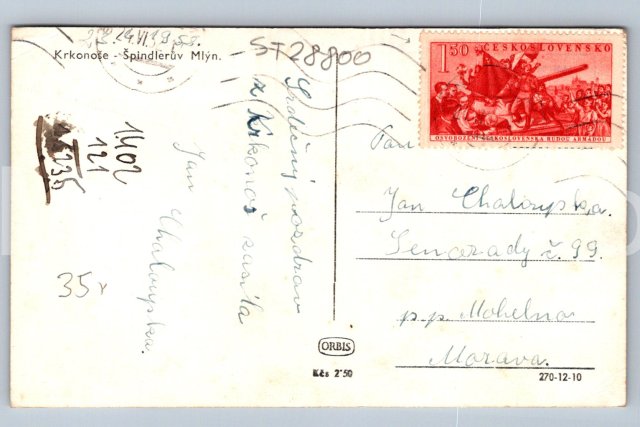 Krkonoše - Špindlerův Mlýn.
ST28800
1402
121
35x
Srdečný pozdrav
z Krkonoš zasílá
Jan Chalupska.
1.50 ČESKOSLOVENSKO
OSVOBOZENÍ ČESKOSLOVENSKA RUDOU ARMÁDOU
Pan
Jan
č. 99.
p.p. Mohelno
Morava.
ORBIS
Kčs 2'50
270-12-10